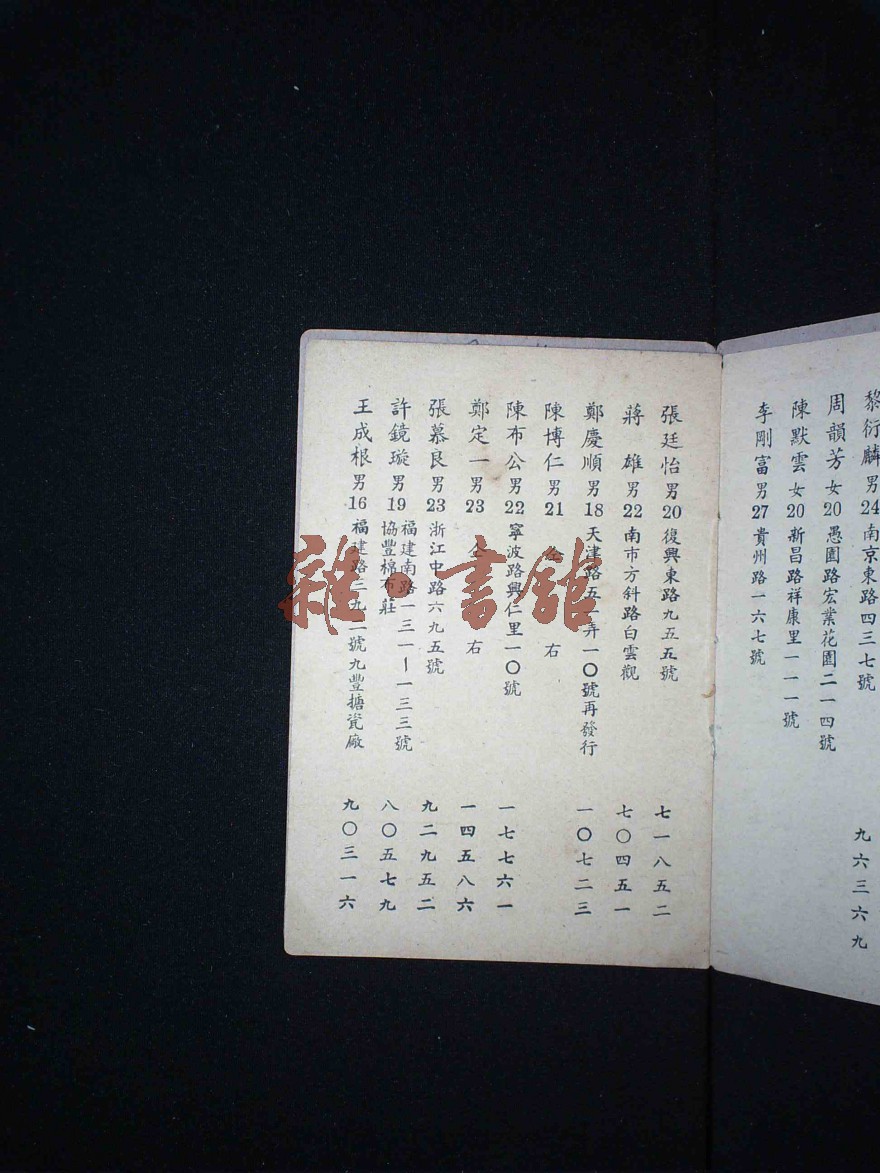 黎衍麟男24南京東路四三七號 九六三六九
周韻芳女20愚園路宏業花園二一四號
陳默雲女20新昌路祥康里一一一號
李剛富男27貴州路一六七號
張廷怡男20復興東路九五五號 七一八五二
蔣雄男22南市方斜路白雲觀 七〇四五一
鄭慶順男18天津路五一弄一〇號再發行 一〇七二三
陳博仁男21仝右
陳布公男22寧波路興仁里一〇號 一七七六一
鄭定一男23仝右 一四五八六
張慕良男23浙江中路六九五號 九二九五二
許鏡璇男19福建南路一三一～一三三號 八〇五七九
協豐棉布莊
王成根男16福建路二九二號九豐搪瓷廠 九〇三一六
雜·書館